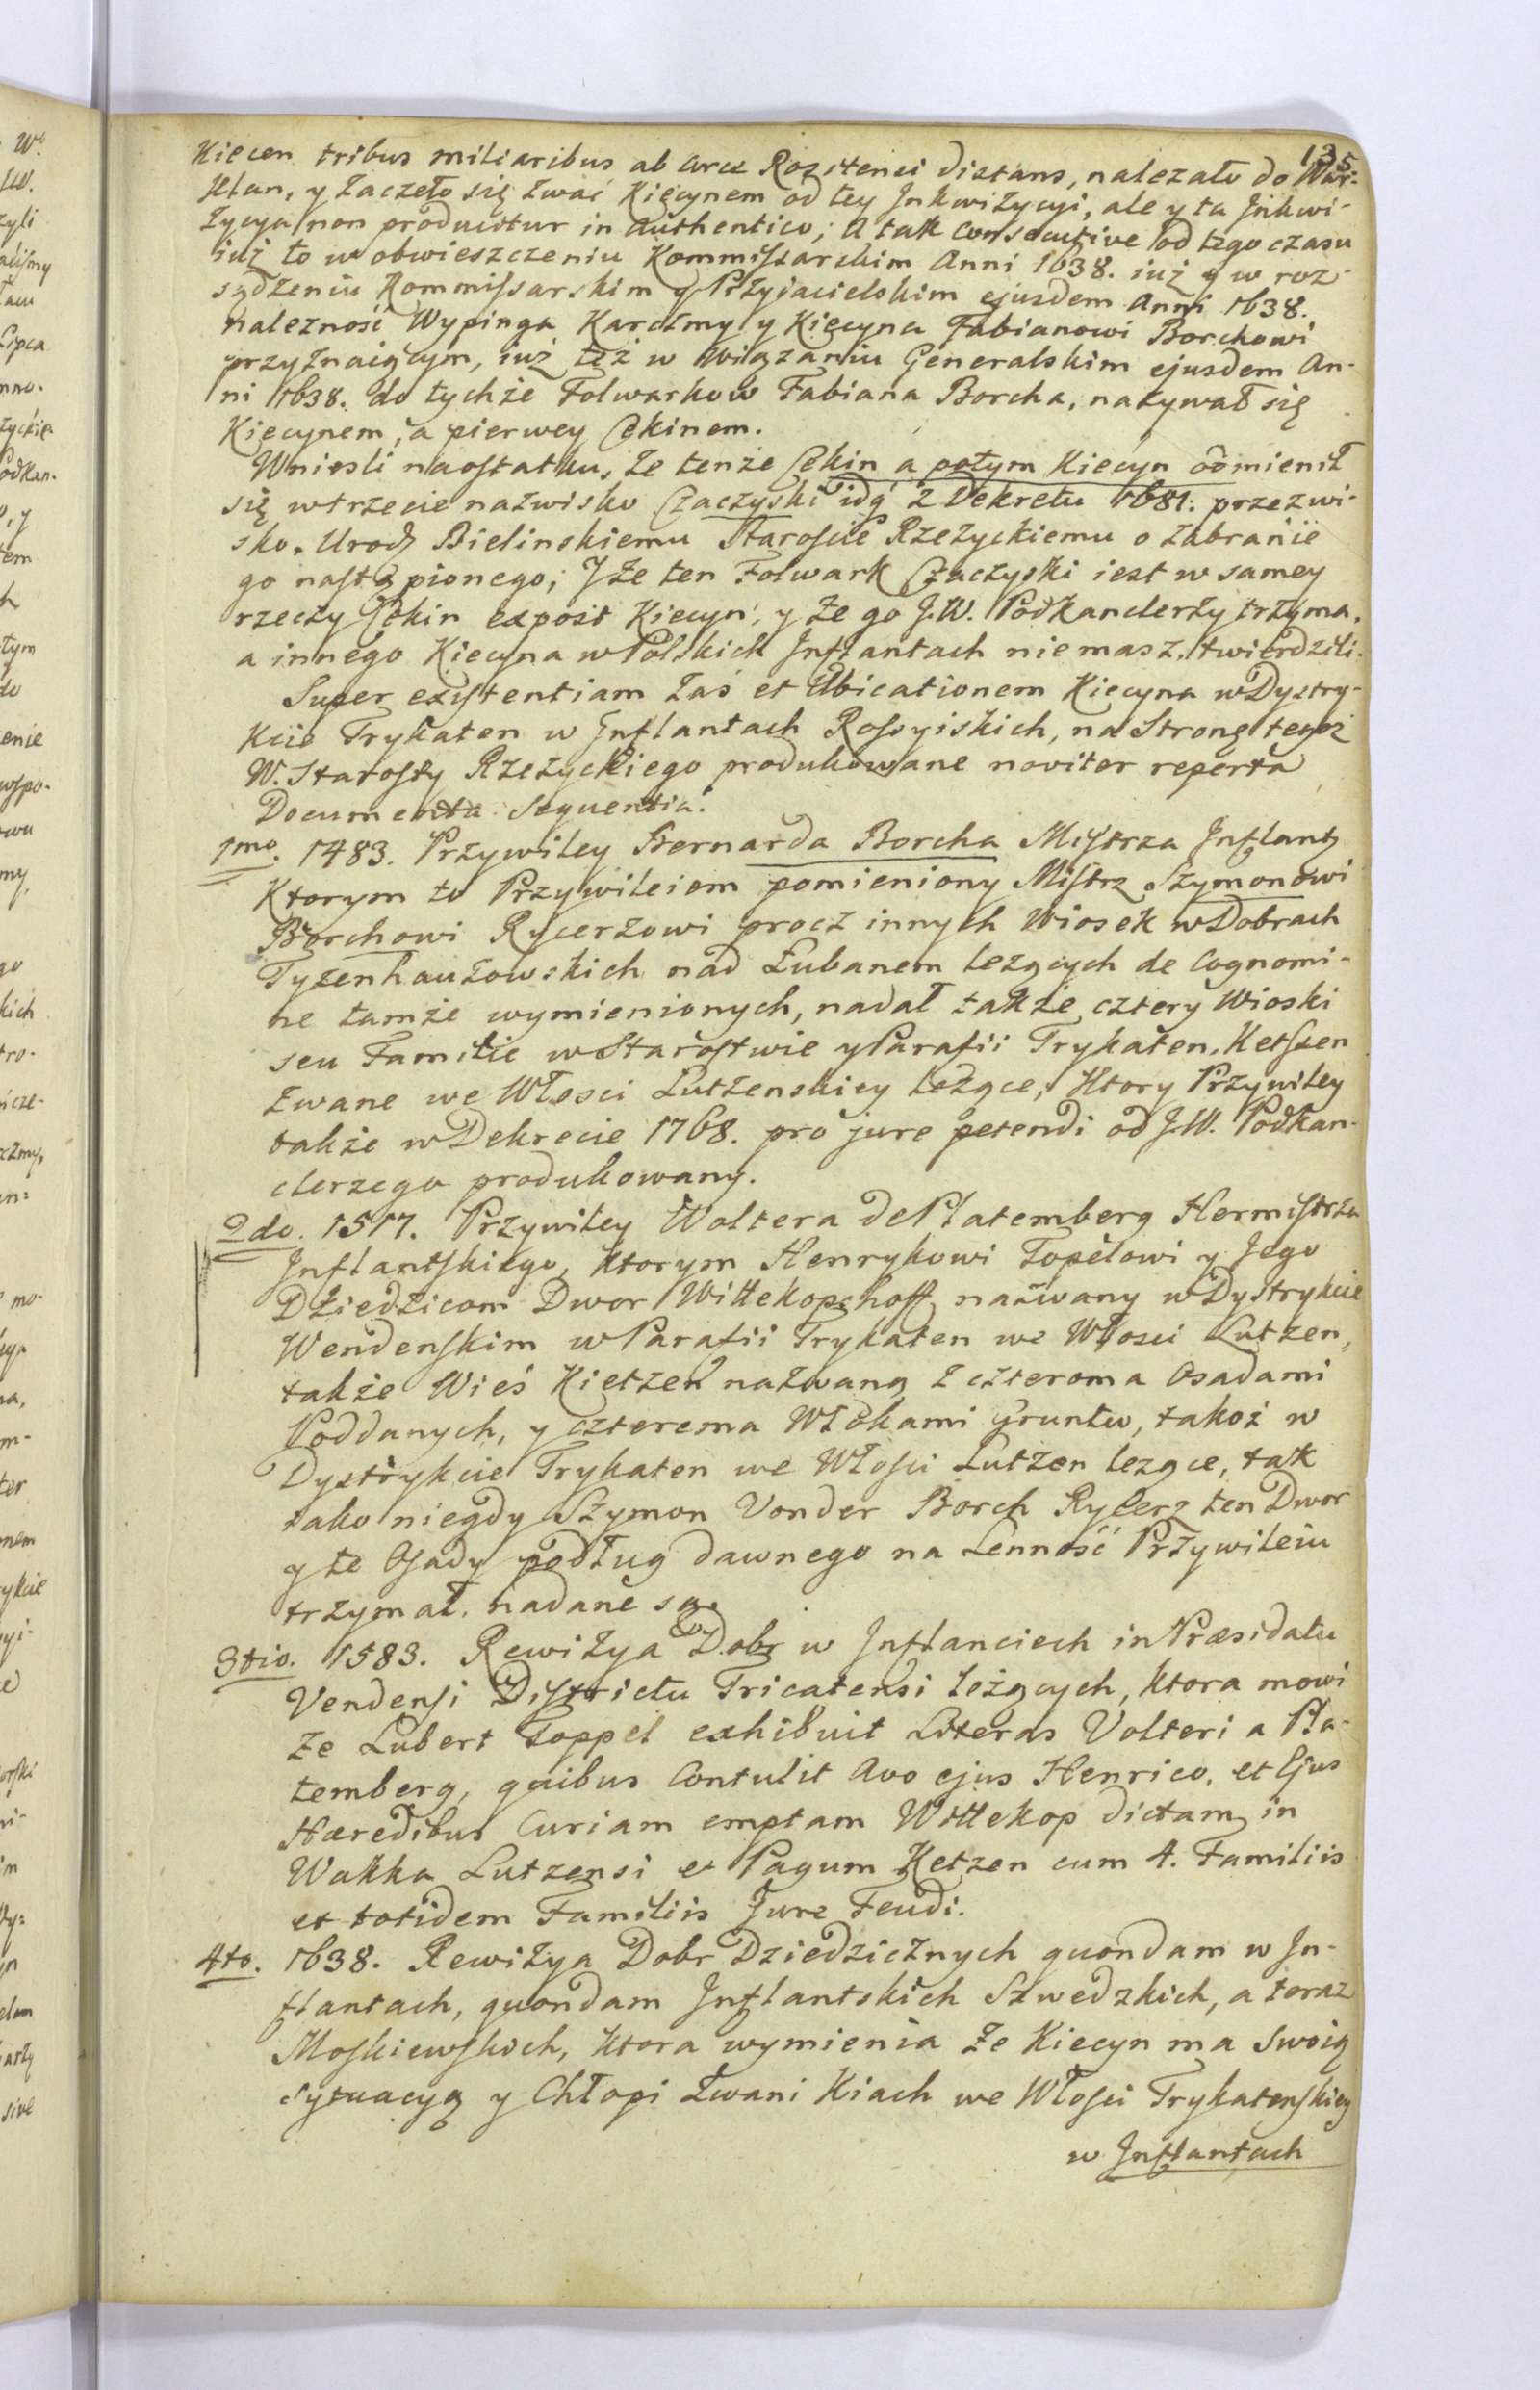 135
Kiecen tribus miliaribus ab arce Rozitensi distans, należało do War-
klan, y zaczeło się zwać Kięcynem od tey Inkwizycyi, ale y ta Inkwi-
zycya non producitur in authentico; A tak consecutive od tego czasu
iuż to w obwieszczeniu Kommissarskim Anni 1638. iuż y w roz-
sądzeniu Kommissarskim y Przyjacielskim ejusdem Anni 1638.
nalezność Wypinga Karczmy y Kięcyna Fabianowi Borchowi
przyznaiącym, iuż też w Wiązaniu Generalskim ejusdem An-
ni 1638. do tychże Folwarkow Fabiana Borcha, nazywał się
Kięcynem, a pierwey Cekinem.
Wniesli naostatku, że tenże Cekin a potym Kiecyn odmienił
się w trzecie nazwisko Czaczyski idą z Dekretu 1681. przezwi-
sko. Urodz Bielinskiemu Staroscie Rzeżyckiemu o zabranie
go nastąpionego; Y że ten Folwark Czaczyski iest w samey
rzeczy Cekin expost Kiecyn, y że go J.W. Podkanclerzy trzyma,
a innego Kiecyna w Polskich Inflantach nie masz, twierdzili.
Super existentiam zaś et Ubicationem Kiecyna w Dystry-
kcie Trykaten w Inflantach Rossyiskich, na Stronę tegoż
W. Starosty Rzeżyckiego produkowane noviter reperta
Documenta sequentia.
1mo. 1483. Przywiley Bernarda Borcha Mistrza Inflantz
Ktorym to Przywileiem pomieniony Mistrz Szymonowi
Borchowi Rycerzowi procz innych Wiosek w Dobrach
Tyzenhauzowskich nad Łubanem lezących de Cognomi-
ne tamże wymienionych, nadał także cztery Wioski
seu Familie w Starostwie y Parafii Trykaten, Ketssen
zwane we Włosci Lutzenskiey leżące, Ktory Przywiley
także w Dekrecie 1768. pro jure petendi od J.W. Podkan-
clerzego produkowany.
2do. 1517. Przywiley Woltera de Platemberg Hermistrza
Inflantskiego, ktorym Henrykowi Topelowi y Jego
Dziedzicom Dwor Wittekopshoff nazwany w Dystrykcie
Wendenskim w Parafii Trykaten we Włosci Lutzen,
także Wieś Kietzen nazwaną z czteroma Osadami
Poddanych, y czterema Włokami gruntu, takoż w
Dystrykcie Trykaten we Włosci Lutzen lezące, tak
iako niegdy Szymon Vonder Borch Rycerz ten Dwor
y te Osady podług dawnego na Lenność Przywileiu
trzymał, nadane są.
3tio. 1583. Rewizya Dobr w Inflanciech in Præsidatu
Vendensi Districtu Tricatensi leżących, ktora mowi
że Lubert Toppel exhibuit Literas Volteri a Pla-
temberg, quibus Contulit Avo ejus Henrico, et Ejus
Hæredibus Curiam emptam Wittekop dictam in
Wakka Lutzensi et Pagum Ketzen cum 4. Familiis
et totidem Familiis Jure Feudi.
4to. 1638. Rewizya Dobr Dziedzicznych quondam w In-
flantach, quondam Inflantskich Szwedzkich, a teraz
Moskiewskich, ktora wymienia że Kiecyn ma Swoią
sytuacyą y Chłopi zwani Kiach we Włosci Trykatenskiey
w Inflantach